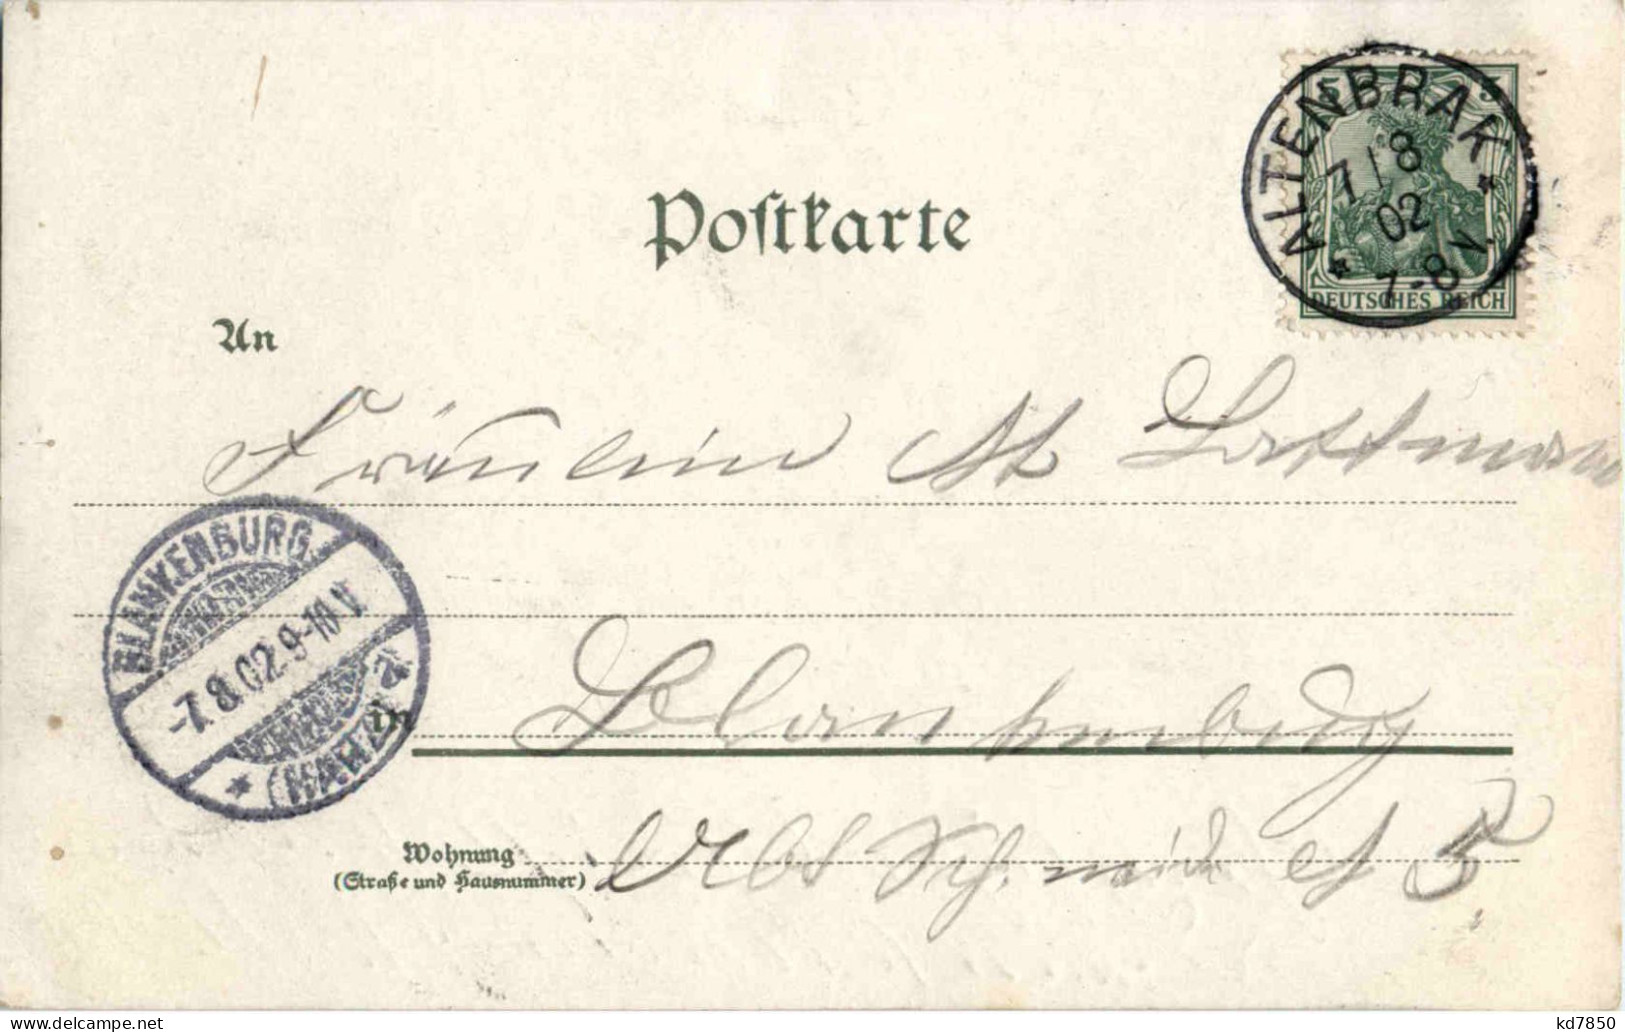 Postkarte
ALTENBRAK
7/8
02
7-8 V.
5 5
DEUTSCHES REICH
An
Fräulein M Lattmann
BLANKENBURG
-7.8.02.9-10 V.
(HARZ) a
in
Blankenburg
Wohnung
(Straße und Hausnummer)
5
delcampe.net
kd7850